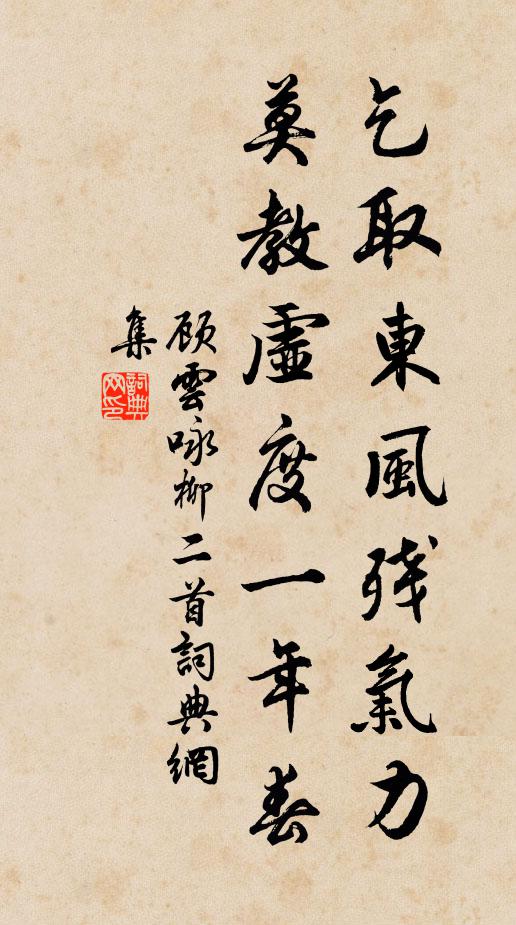 乞取東風殘氣力
莫教虛度一年春
顧雲咏柳二首詞典網
集
詞典
网印